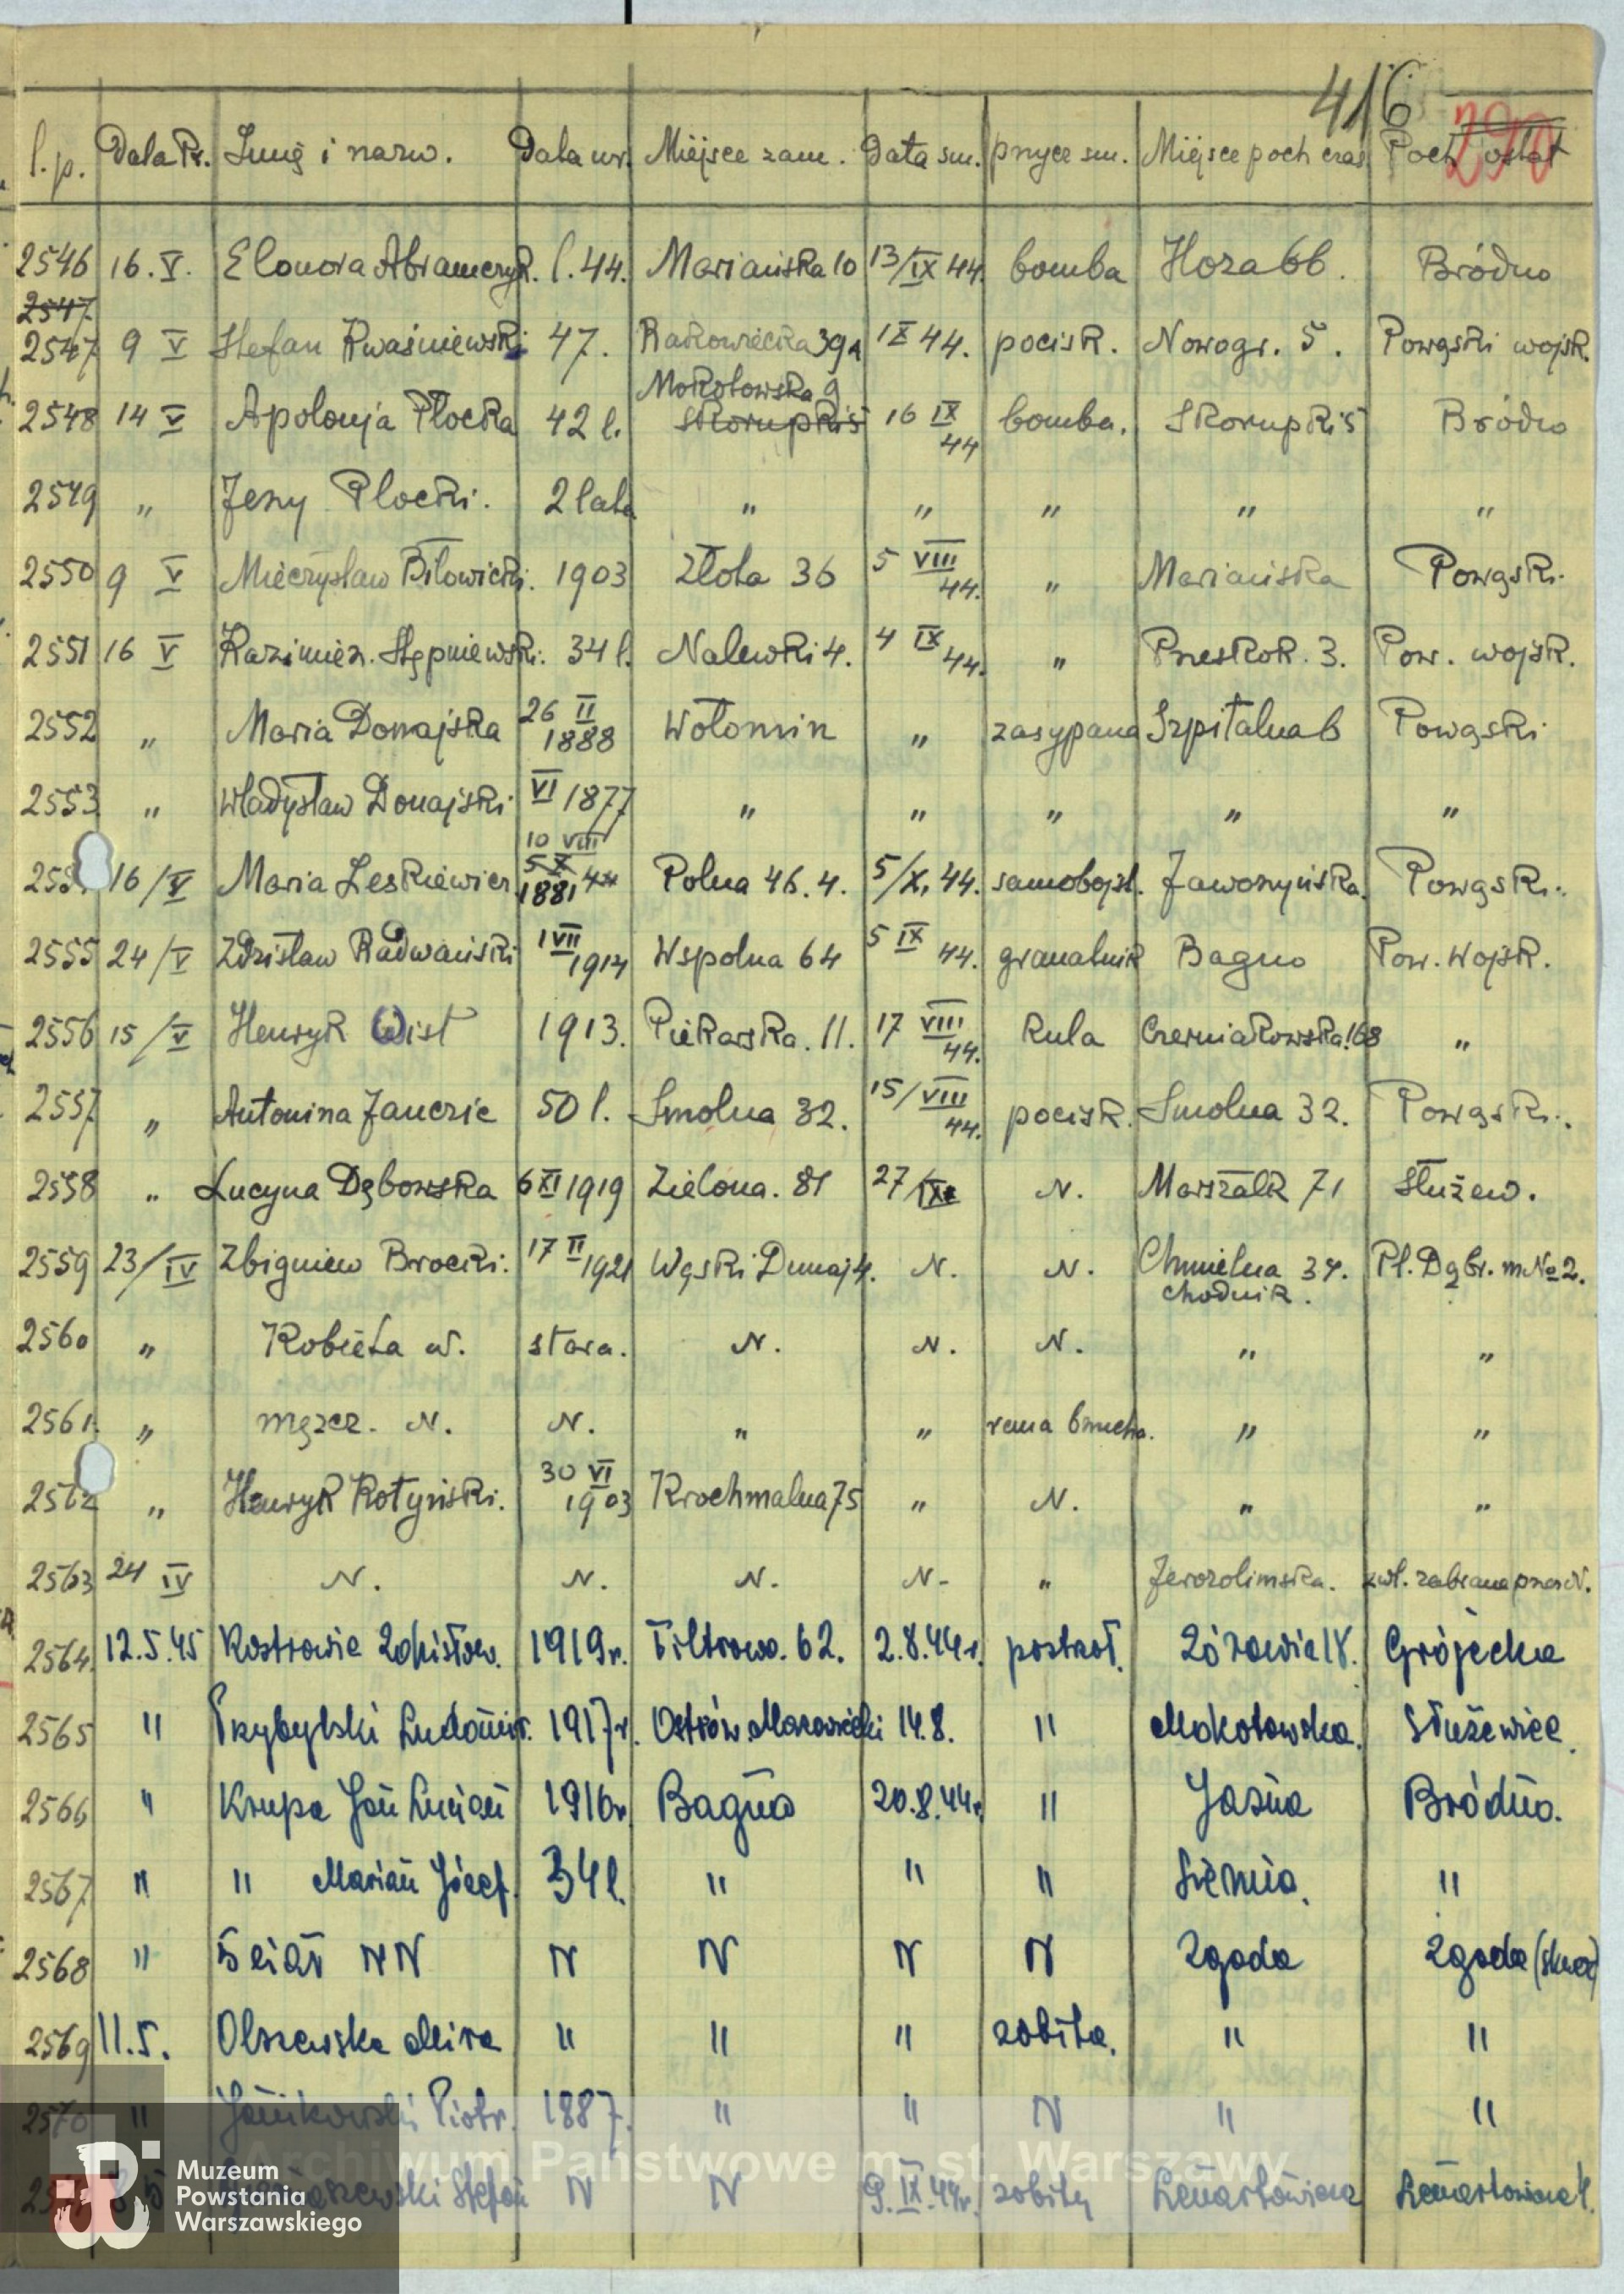 416
290
l.p. Data Pr. Imię i nazw. Data ur. Miejsce zam. Data śm. przycz śm. Miejsce poch czas Poch ostat
2546 16. V. Elonora Abramczyk. l. 44. Mariańska 10 13/IX 44. bomba Hoża 6b. Bródno
2547
2547 9 V Stefan Kwaśniewski 47. Rakowiecka 39a IX 44. pocisk. Nowogr. 5. Powązki wojsk.
Mokotowska 9
2548 14 V Apolonja Płocka 42 l. Skorupki 5 16 IX 44 bomba. Skorupki 5 Bródno
2549 " Jerzy Płocki. 2 lata " " " " "
2550 9 V Mieczysław Biłowicki. 1903 Złota 36 5 VIII 44. " Mariańska Powązki.
2551 16 V Kazimierz. Stępniewski. 34 l. Nalewki 4. 4 IX 44. " Przeskok. 3. Pow. wojsk.
2552 " Maria Donajska 26 II 1888 Wołomin " zasypana Szpitalna 6 Powązki
2553 " Władysław Donajski VI 1877 " " " " "
10 VIII
16/V Maria Leskiewicz 5 X 44 1881 Polna 46. 4. 5/X. 44. samobójst. Jaworzyńska. Powązki.
2555 24/V Zdzisław Radwański 1 VII 1914 Wspolna 64 5 IX 44. granatnik Bagno Pow. Wojsk.
2556 15/V Henryk Wist 1913. Piekarska. 11. 17 VIII 44. Kula Czerniakowska. 168 "
2557 " Antonina Janczic 50 l. Smolna 32. 15/VIII 44. pocisk. Smolna 32. Powązki.
2558 " Lucyna Dębowska 6 XI 1919 Zielona. 81 27/IX N. Marszałk 71 Służew.
2559 23/IV Zbigniew Brocki. 17 II 1921 Wąski Dunaj 4. N. N. Chmielna 34. Pl. Dąbr. m No 2.
chodnik.
2560 " Kobieta N. stara. N. N. N. " "
2561. " mężcz. N. N. " " rana brzucha. " "
2562 " Henryk Kotyński. 30 VI 1903 Krochmalna 75 " N. " "
2563 24 IV N. N. N. N- " Jerozolimska. zwł. zabrane przez N.
2564. 12.5.45 Kostrowic Zdzisław. 1919r. Filtrowa. 62. 2.8.44r. postrzał. Żórawia 18. Grójecka
2565 " Przybylski Ludomir. 1917r. Ostrów Mazowiecki 14.8. " Mokotowska. Służewiec.
2566 " Krupa Jan Lucjan 1916r. Bagno 20.8.44r. " Jasna Bródno.
2567 " " Marian Józef. 34 l. " " " Sienna. "
2568 " NN N N N N Zgoda Zgoda
2569 11.5. Olszewska Mira " " " zabita. " "
2570 " Janikowski Piotr. 1887. " " N " "
Stefan N N 9. IX. 44r. zabity Lenartowicza Lenartowicza 1.
Archiwum Państwowe m. st. Warszawy
Muzeum
Powstania
Warszawskiego